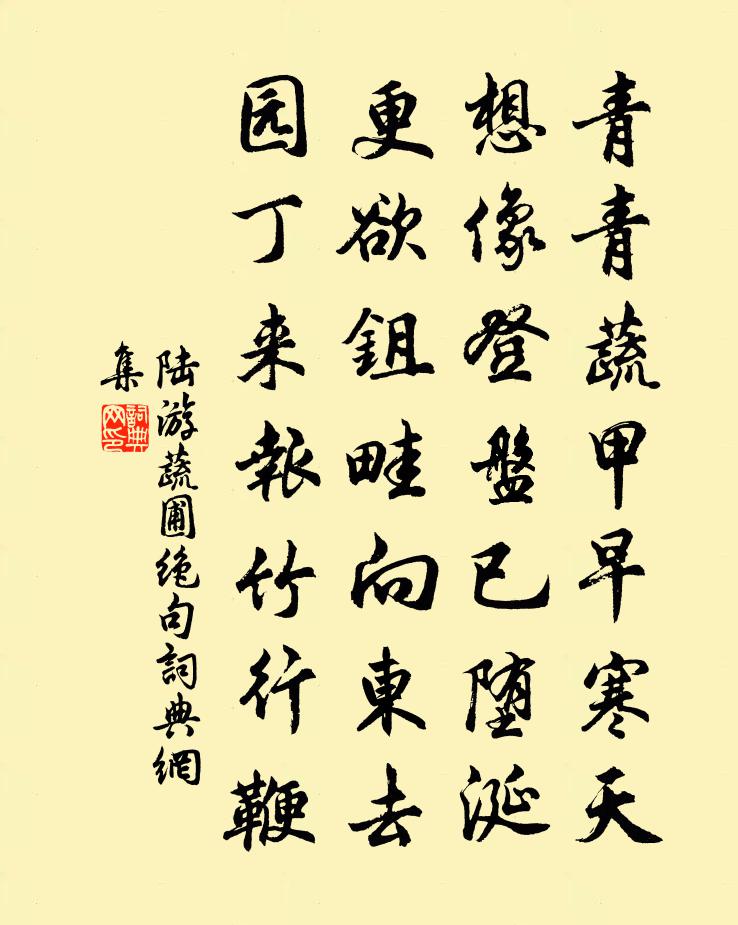 青青蔬甲早寒天
想像登盤已堕涎
更欲鉏畦向東去
园丁来報竹行鞭
陆游蔬圃绝句詞典網
集
詞典
网印